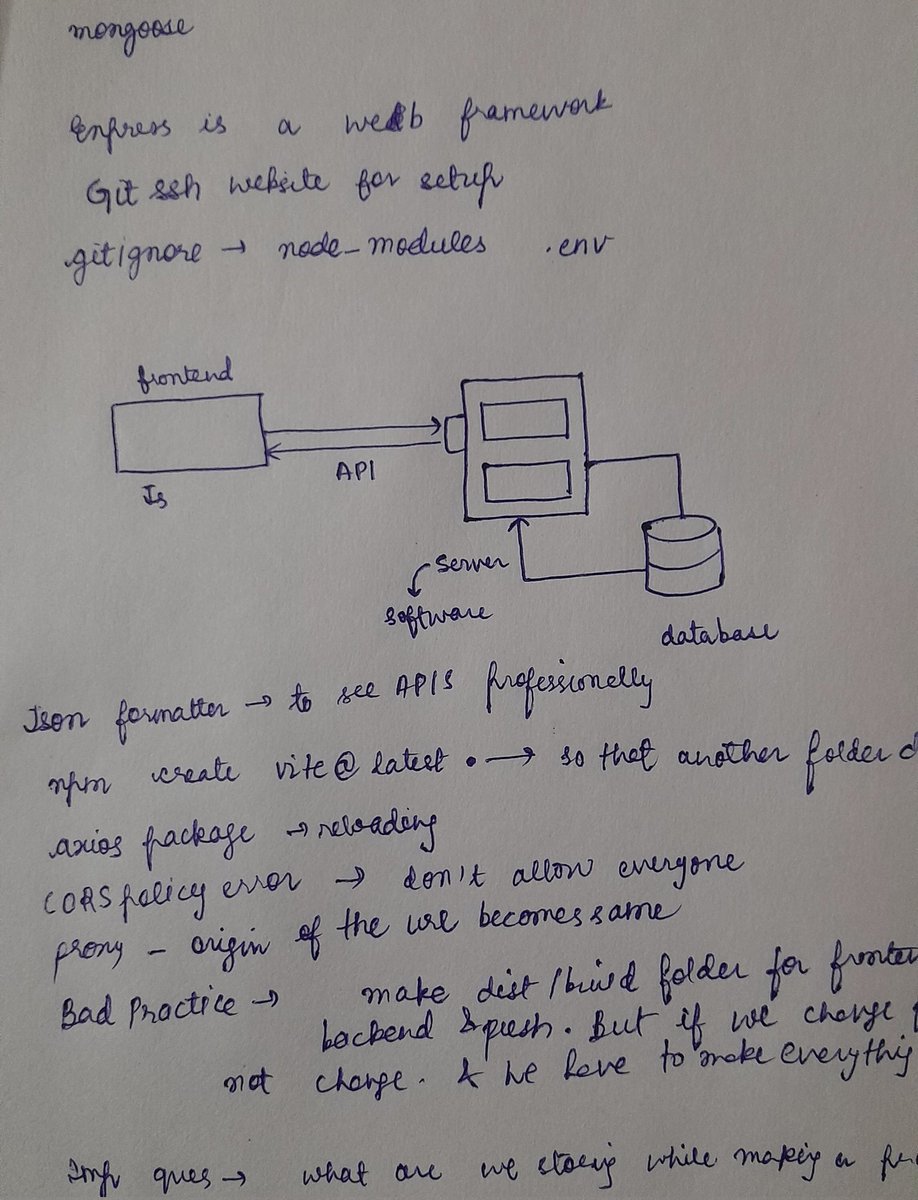 mongoose
Express is a web framework
Git ssh website for setup
.gitignore → node_modules .env
frontend
Js
API
Server
software
database
Json formatter → to see APIS professionally
npm create vite@latest . → so that another folder
axios package → reloading
CORS policy error → don't allow everyone
proxy - origin of the url becomes same
Bad Practice → make dist/build folder for fronten
backend & push. But if we change
not change. & we have to make everything
Imp ques → what are we storing while making a